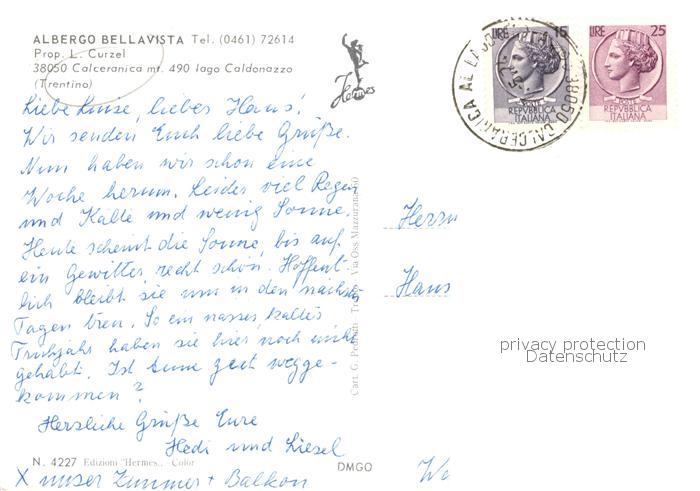 ALBERGO BELLAVISTA Tel. (0461) 72614
Prop. L. Curzel
38050 Calceranica mt. 490 lago Caldonazzo
(Trentino)
Hermes
LIRE 15
POSTE
REPVBBLICA
ITALIANA
LIRE 25
POSTE
REPVBBLICA
ITALIANA
38050 CALCERANICA AL LAGO
Liebe Luise, lieber Hans!
Wir senden Euch liebe Grüße.
Nun haben wir schon eine
Woche herum. Leider viel Regen
und Kälte und wenig Sonne.
Heute scheint die Sonne, bis auf
ein Gewitter, recht schön. Hoffent-
lich bleibt sie uns in den nächsten
Tagen treu. So ein nasses, kaltes
Frühjahr haben sie hier noch nicht
gehabt. Ist Eure gut wegge-
kommen?
Herzliche Grüße Eure
Hedi und Liesel
X unser Zimmer + Balkon
N. 4227 Edizioni "Hermes" Color
DMGO
Via Oss Mazzurana
Herrn
Hans
privacy protection
Datenschutz